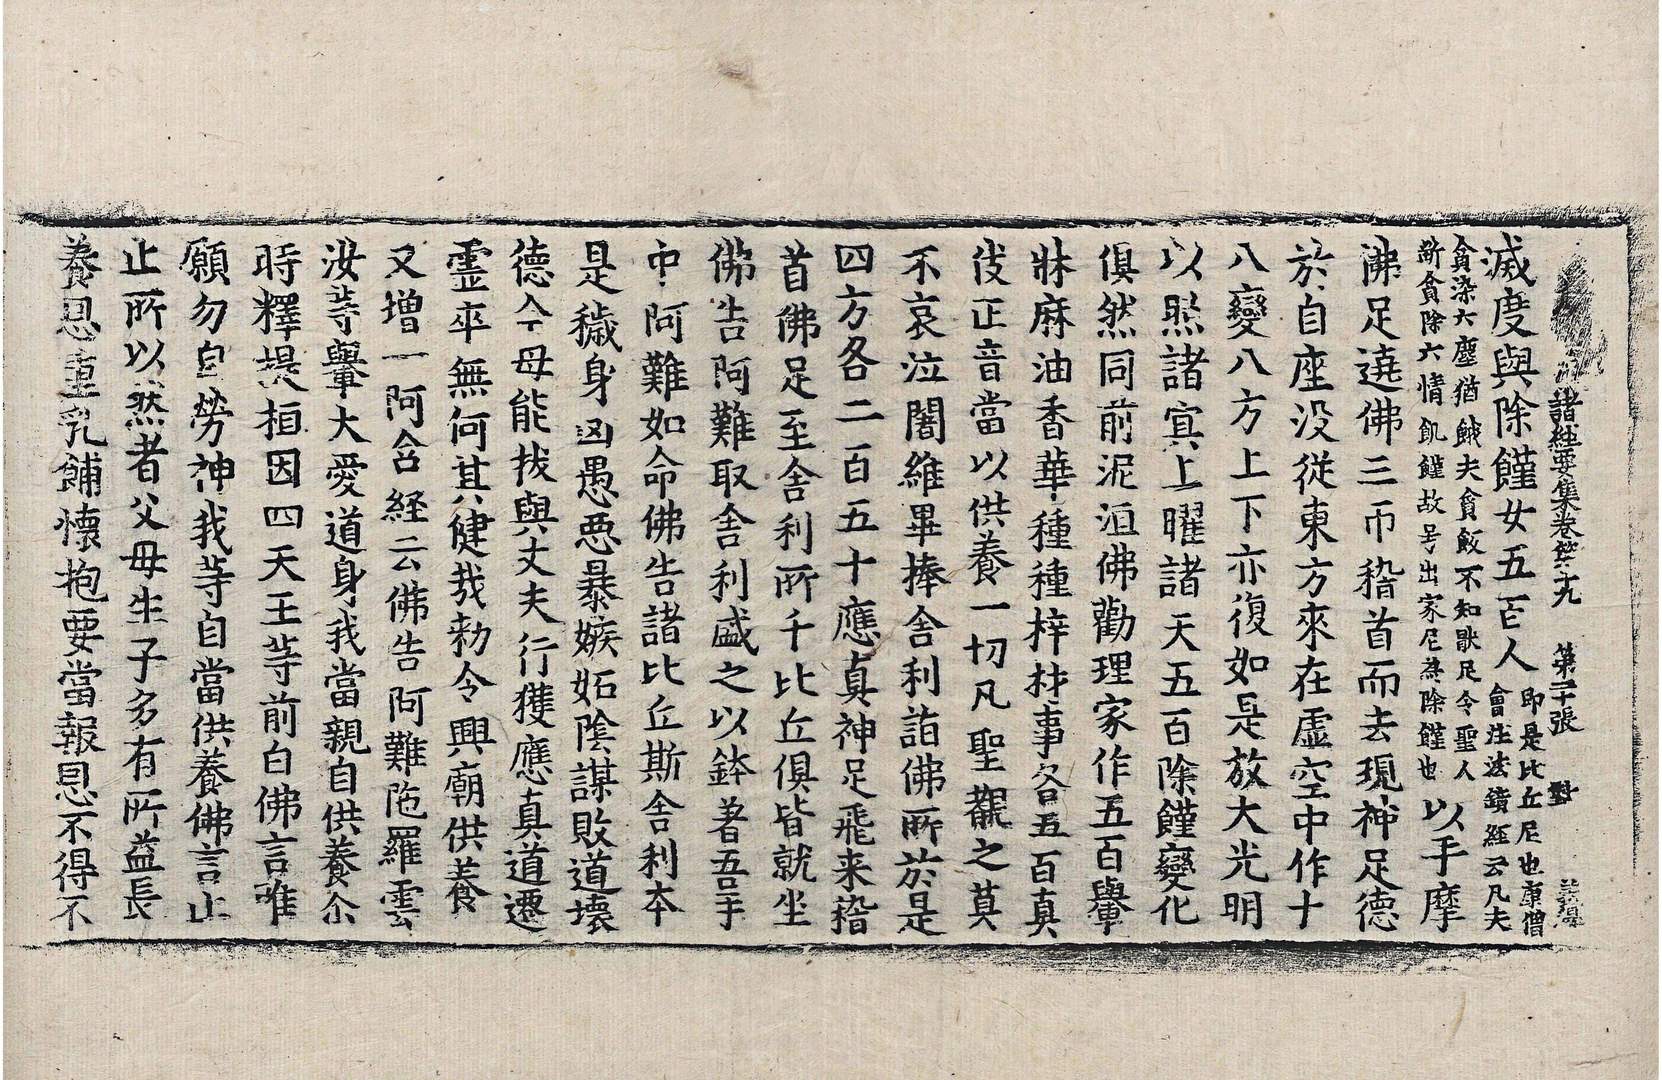 諸經要集卷第十九 第二十張 對
滅度與除饉女五百人即是比丘尼也康僧會注法鏡經云凡夫
貪染六塵猶餓夫貪飯不知猒足今聖人斷貪除六情飢饉故号出家尼爲除饉也以手摩
佛足遶佛三帀稽首而去現神足德
於自座没從東方來在虛空中作十
八變八方上下亦復如是放大光明
以照諸冥上曜諸天五百除饉變化
俱然同前泥洹佛勸理家作五百轝
牀麻油香華種種梓材事各五百真
伎正音當以供養一切凡聖覩之莫
不哀泣闍維畢捧舍利詣佛所於是
四方各二百五十應真神足飛来稽
首佛足至舍利所千比丘俱皆就坐
佛告阿難取舍利盛之以鉢著吾手
中阿難如命佛告諸比丘斯舍利本
是穢身凶愚惡暴嫉妬陰謀敗道壞
德今母能拔與丈夫行獲應真道遷
霊卒無何其健哉勑令興廟供養
又增一阿含経云佛告阿難陁羅雲
汝等轝大愛道身我當親自供養尒
時釋提桓因四天王等前白佛言唯
願勿自勞神我等自當供養佛言止
止所以然者父母生子多有所益長
養恩重乳餔懷抱要當報恩不得不